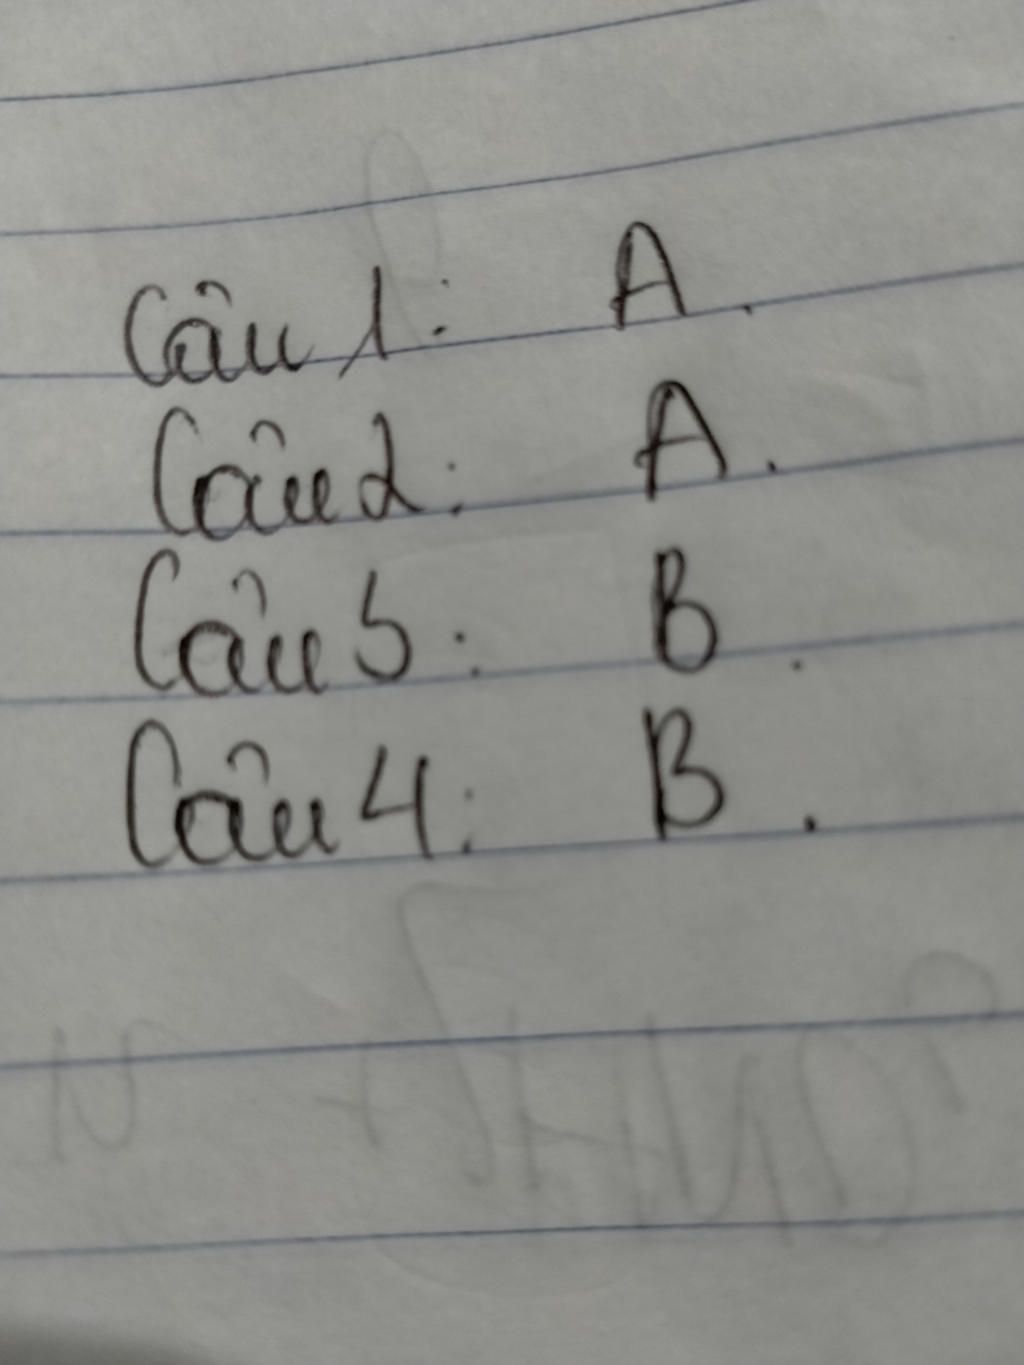 Câu 1: A.
Câu 2: A.
Câu 5: B.
Câu 4: B.